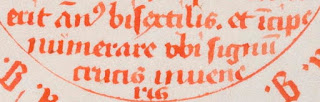 erit ān⁹ bisextilis. et īcipe
numerare vbi signū
crucis invene
ris
.B.
.B.